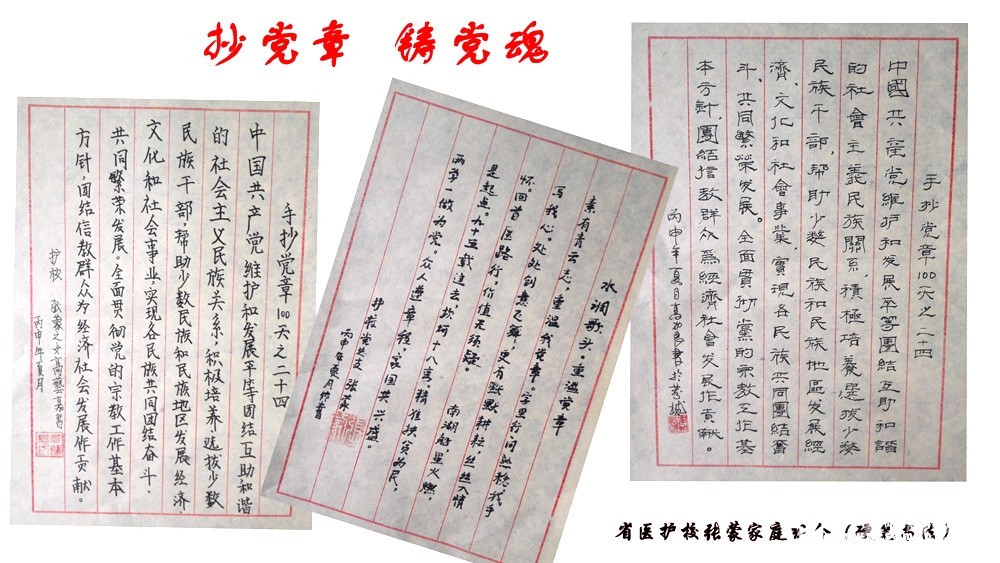 抄党章 铸党魂
手抄党章100天之二十四
中国共产党维护和发展平等团结互助和谐
的社会主义民族关系,积极培养、选拔少数
民族干部,帮助少数民族和民族地区发展经济、
文化和社会事业,实现各民族共同团结奋斗、
共同繁荣发展。全面贯彻党的宗教工作基本
方针,团结信教群众为经济社会发展作贡献。
护校 张蒙之女高藝嘉書
丙申年夏月
水调歌头·重温党章
素有青云志,重温我党章。字里行间,我手
写我心。处处创意飞舞,更有默默耕耘,丝丝入情
怀。回首医路行,价值无疑。 南湖舫,星火燃,
是起点。九十五载过去,坎坷十八春,精准扶贫为民,
两学一做为党。众人遵章程,家国共兴盛。
护校党总支 张蒙
丙申年夏月作書
手抄党章100天之二十四
中國共産党維护和发展平等團結互助和諧
的社會主義民族關系,積極培養、选拔少數
民族干部,帮助少數民族和民族地區发展經
濟、文化和社會事業,實現各民族共同團結奮
斗、共同繁榮发展。全面貫彻黨的宗教工作基
本方針,團結信教群众爲經濟社會发展作貢獻。
丙申年夏日高書於城
省医护校张蒙家庭(硬笔书法)